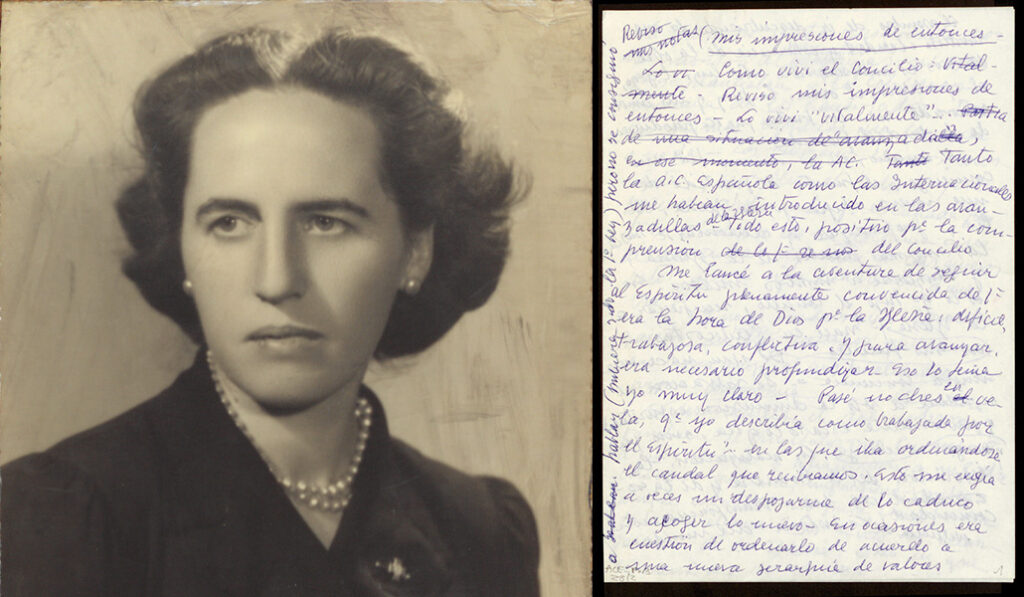 Reviso
mis notas (mis impresiones de entonces -
Lo vi Como viví el Concilio: Vital-
mente - Reviso mis impresiones de
entonces - Lo viví "vitalmente" -
de una situación de avanzadilla,
en ese momento, la AC. Tanto Tanto
la A.C. Española como las Internacionales
me habían introducido en las avan-
zadillas de la Iglesia Todo esto, positivo pª la com-
prensión del Concilio
Me lancé a la aventura de seguir
al Espíritu plenamente convencida de qe
era la hora de Dios pª la Iglesia, difícil,
trabajosa, conflictiva. Y para avanzar,
era necesario profundizar - Eso lo tenía
yo muy claro - Pasé noches en ve-
la, qe yo describía como "trabajada por
el Espíritu" - en las que iba ordenándose
el caudal que recibíamos. Esto me exigía
a veces un despojarme de lo caduco
y acoger lo nuevo - En ocasiones era
cuestión de ordenarlo de acuerdo a
una nueva jerarquía de valores
1